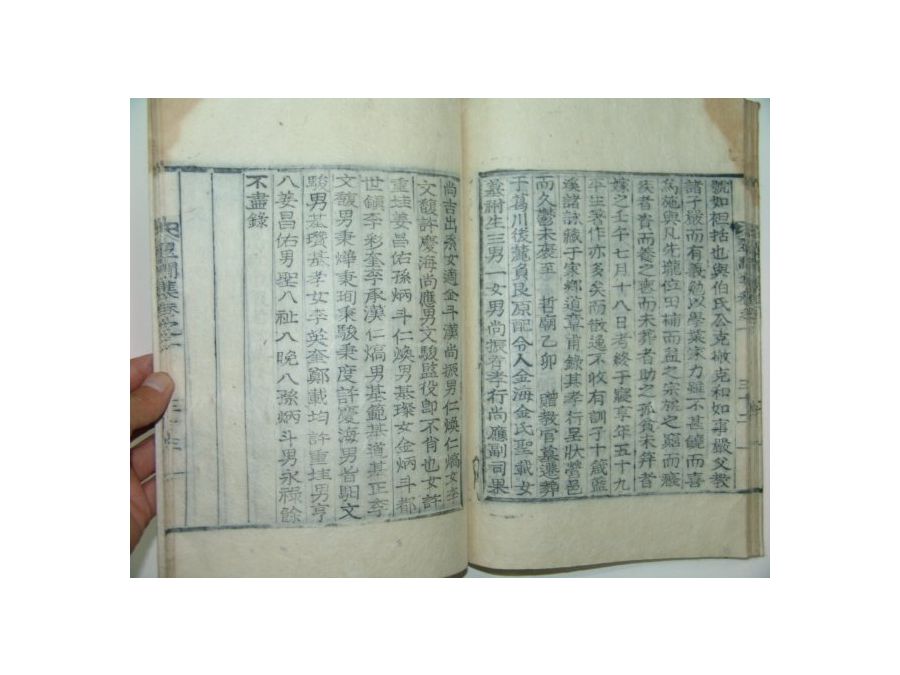 號如祖括也與伯氏公克敬克和如事嚴父教
諸子嚴而有義勉以學業家力雖不甚饒而喜
爲施與凡先壠位田補而益之宗族之窮而癈
疾者賣而養之喪而未葬者助之孤貧未笄者
嫁之壬午七月十八日考終于寢享年五十九
平生著作亦多矣而散逸不收有訓子十箴藍
溪諸詠藏于家鄕道章甫錄其孝行呈狀營邑
而久鬱未褒至 哲廟乙卯 贈教官墓遷葬
于葛川後麓負艮原配令人金海金氏聖載女
墓祔生三男一女男尚振耆孝行尚應副司果
尚吉出系女適金斗漢尚振男仁煥仁熇女李
文馥許慶海尚應男文駿監役卽不肖也女許
重珪姜昌佑孫炳斗仁煥男基璨女金炳斗都
世鎭李彩奎李承漢仁熇男基範基道基正李
文馥男秉燁秉珣秉駿秉度許慶海男晳馹文
駿男基瓚基孝女李英奎鄭載均許重珪男亨
八姜昌佑男聖八祉八晚八孫炳斗男永祿餘
不盡錄